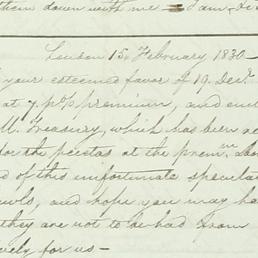 them down with me — I am, De
London 15, February, 1830 —
your esteemed favor of 19, Dec.r
at 7 p% premium, and en
U. Treasury, which has been re
for the pesetas at the prem.m abo
d of this unfortunate speculat
owls, and hope you may ha
they are not to be had from
vely for us —